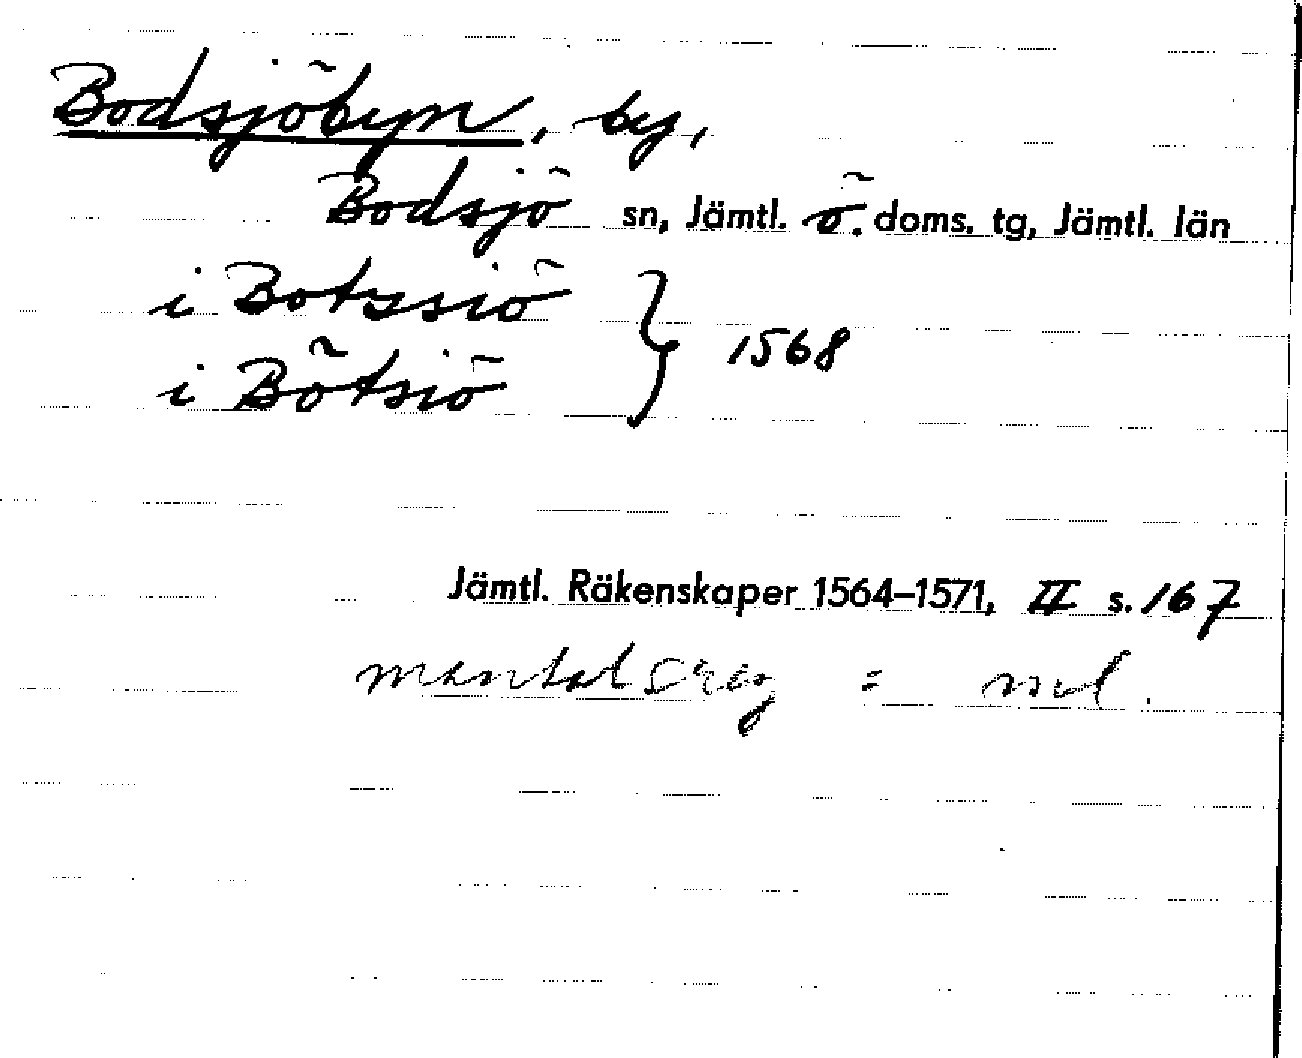 Bodsjöbyn, by,
Bodsjö sn, Jämtl. ö. doms. tg, Jämtl. län
i Botzsiö
i Bötsiö } 1568
Jämtl. Räkenskaper 1564–1571, II s. 167
mantalsreg =